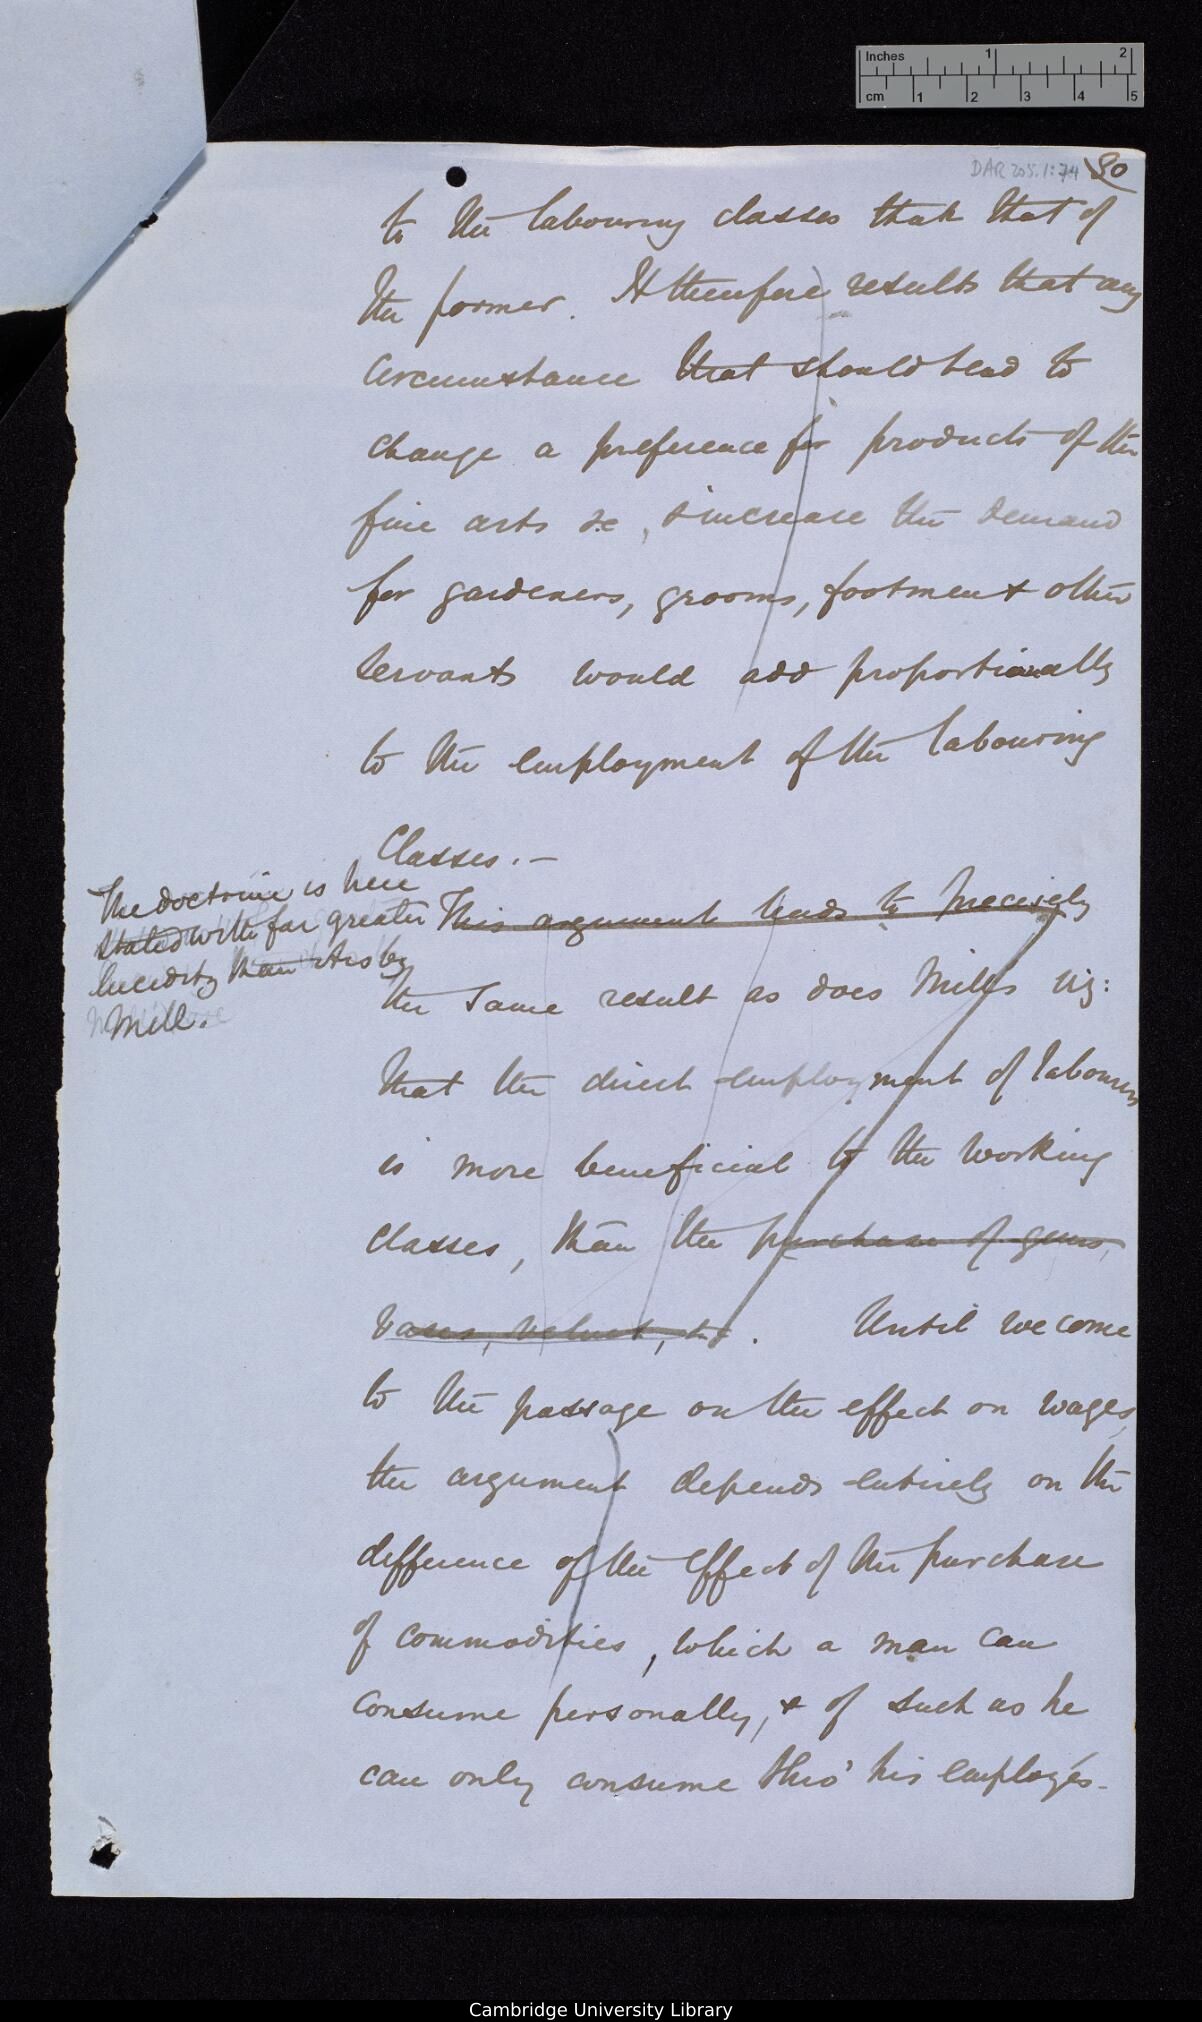 Inches 1 2
cm 1 2 3 4 5
DAR 205.1:74 80
to the labouring classes than that of
the former. It therefore results that any
circumstance that should tend to
change a preference for products of the
fine arts &c, & increase the demand
for gardeners, grooms, footmen & other
servants would add proportionally
to the employment of the labouring
Classes. —
The doctrine is here
stated with far greater
lucidity than it is by
Mill.
This argument leads to precisely
the same result as does Mill's viz:
that the direct employment of labourers
is more beneficial to the working
classes, than the purchase of gems,
vases, velvet, &c. Until we come
to the passage on the effect on wages,
the argument depends entirely on the
difference of the effect of the purchase
of commodities, which a man can
consume personally, & of such as he
can only consume thro' his employés.
Cambridge University Library